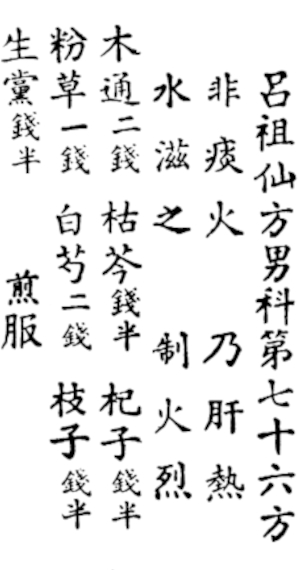 呂祖仙方男科第七十六方
非痰火　乃肝熱
水滋之　制火烈
木通二錢　枯芩錢半　杞子錢半
粉草一錢　白芍二錢　枝子錢半
生黨錢半　煎服